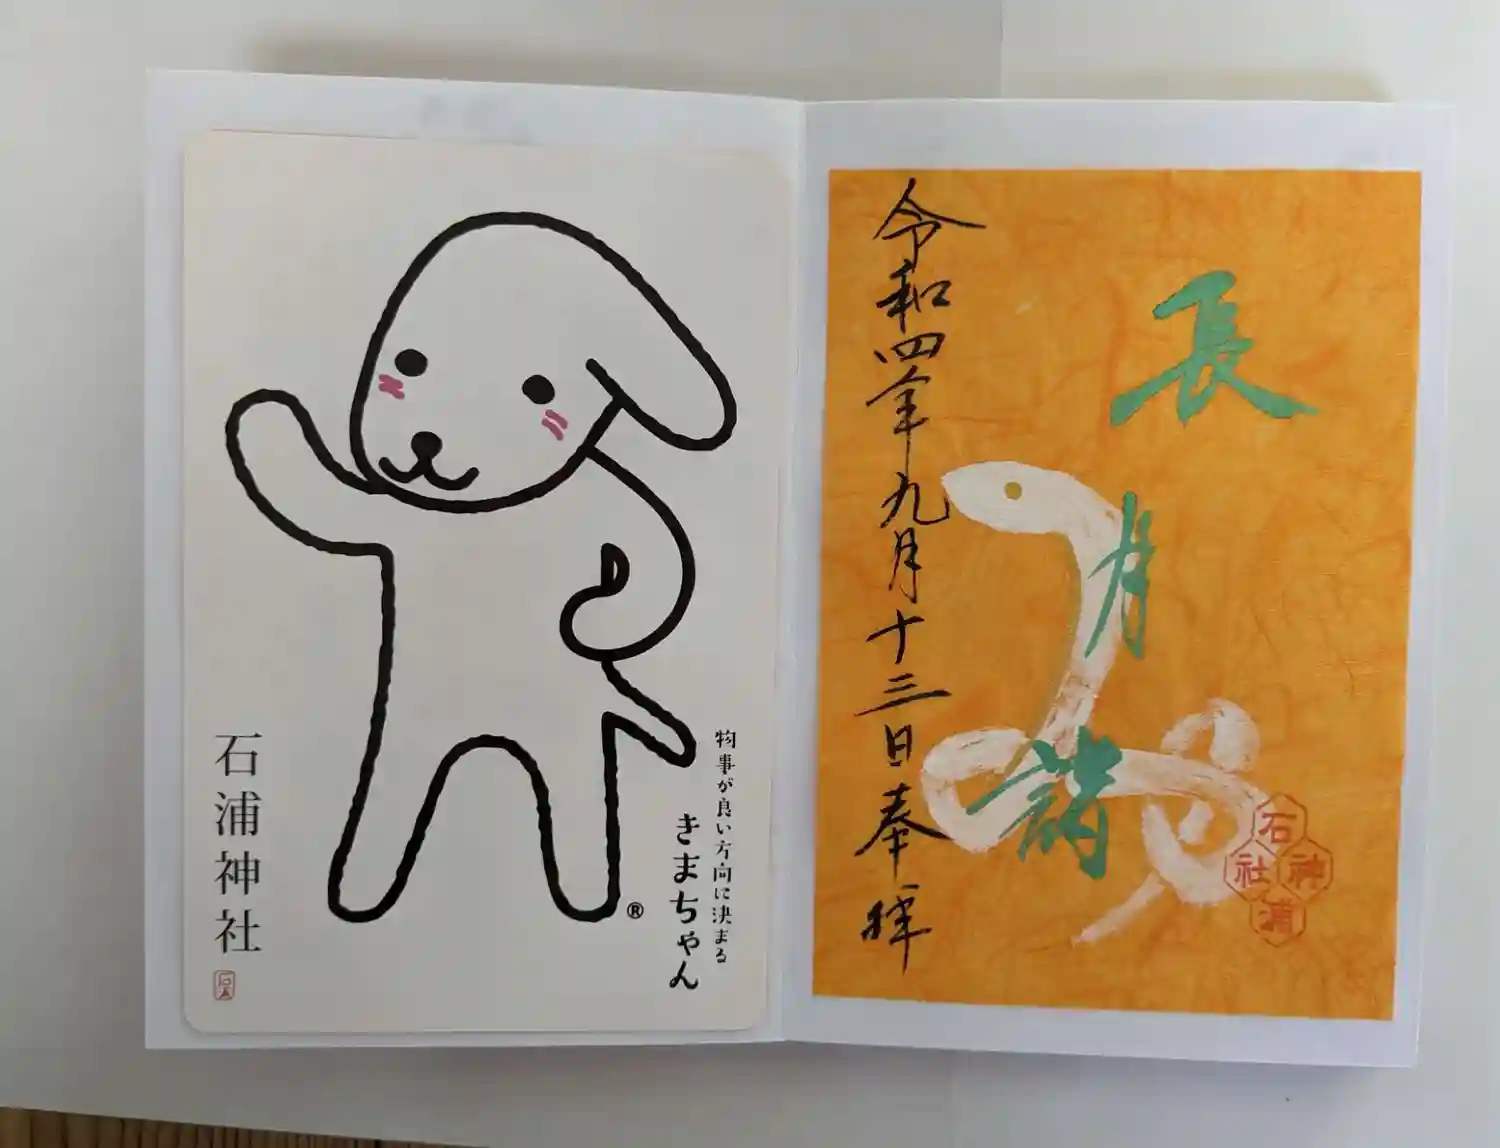 長月詣
令和四年九月十三日奉拝
石浦神社
物事が良い方向に決まる
きまちゃん®
石浦神社